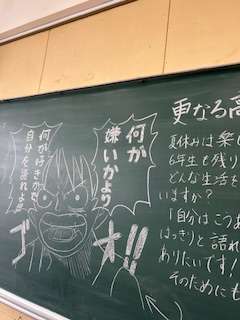 何が
嫌いかより
何が好きかで
自分を語れよ!!!
ド
ン!!
更なる高
夏休みは楽し
6年生も残り
どんな生活を
いますか?
「自分はこうあ
はっきりと語れ
ありたいです!
そのためにも